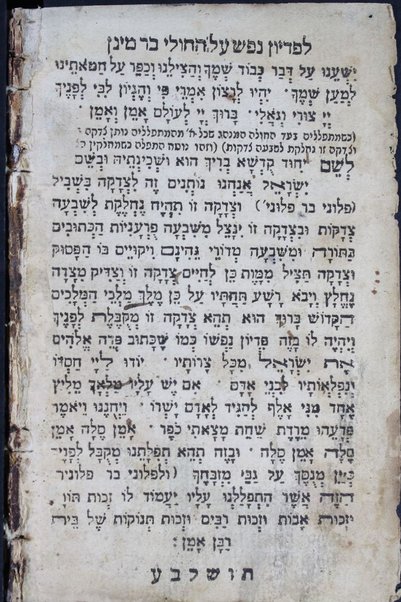 לפדיון נפש על החולי בר מינן
יִשְׁעֵנוּ עַל דְּבַר כְּבוֹד שְׁמֶךָ וְהַצִּילֵנוּ וְכַפֵּר עַל חַטֹּאתֵינוּ
לְמַעַן שְׁמֶךָ · יִהְיוּ לְרָצוֹן אִמְרֵי פִי וְהֶגְיוֹן לִבִּי לְפָנֶיךָ
יְיָ צוּרִי וְגוֹאֲלִי · בָּרוּךְ יְיָ לְעוֹלָם אָמֵן וְאָמֵן ·
(כשמתפללים בעד החולה המנהג שכל א' מהמתפללים נותן צדקה
וצדקה זו נחלקת לשבעה צדקות) (וזהו נוסח התפלה כשמחלקין
לְשֵׁם יִחוּד קֻדְשָׁא בְּרִיךְ הוּא וּשְׁכִינְתֵּיהּ וּבְשֵׁם
יִשְׂרָאֵל אֲנַחְנוּ נוֹתְנִים זֶה לִצְדָקָה בִּשְׁבִיל
(פלוני בר פלוני) וצְדָקָה זוֹ תִּהְיֶה נֶחְלֶקֶת לְשִׁבְעָה
צְדָקוֹת וּבִצְדָקָה זוֹ יִנָּצֵל מִשִּׁבְעָה פֻּרְעָנִיּוֹת הַכְּתוּבִים
בַּתּוֹרָה וּמִשִּׁבְעָה מְדוֹרֵי גֵּהִינָּם וִיקוּיַּים בּוֹ הַפָּסוּק
וּצְדָקָה תַּצִּיל מִמָּוֶת כֵּן לְחַיִּים צְדָקָה זוֹ וְצַדִּיק מִצָּרָה
נֶחֱלָץ וַיָּבֹא רָשָׁע תַּחְתָּיו עַל כֵּן מֶלֶךְ מַלְכֵי הַמְּלָכִים
הַקָּדוֹשׁ בָּרוּךְ הוּא תְּהֵא צְדָקָה זוֹ מְקֻבֶּלֶת לְפָנֶיךָ
וְיִהְיֶה לוֹ מִזֶּה פִּדְיוֹן נַפְשׁוֹ כְּמוֹ שֶׁכָּתוּב פְּדֵה אֱלֹהִים
אֶת יִשְׂרָאֵל מִכֹּל צָרוֹתָיו · יוֹדוּ לַיְיָ חַסְדּוֹ
וְנִפְלְאוֹתָיו לִבְנֵי אָדָם · אִם יֵשׁ עָלָיו מַלְאָךְ מֵלִיץ
אֶחָד מִנִּי אָלֶף לְהַגִּיד לְאָדָם יָשְׁרוֹ · וַיְחֻנֶּנּוּ וַיֹּאמֶר
פְּדָעֵהוּ מֵרֶדֶת שַׁחַת מָצָאתִי כֹפֶר · אָמֵן סֶלָה אָמֵן
סֶלָה אָמֵן סֶלָה · וּבָזֶה תְּהֵא תְפִלָּתֵנוּ מְקֻבֶּלֶת לְפָנֶיךָ
כְּיַיִן מְנֻסָּךְ עַל גַּבֵּי מִזְבַּחֲךָ (ולפלוני בר פלוני)
הַזֶּה אֲשֶׁר הִתְפַּלַּלְנוּ עָלָיו יַעֲמוֹד לוֹ זְכוּת תּוֹרָ
וּזְכוּת אָבוֹת וּזְכוּת רַבִּים וּזְכוּת תִּנּוֹקוֹת שֶׁל בֵּית
רַבָּן אָמֵן :
תושלבע